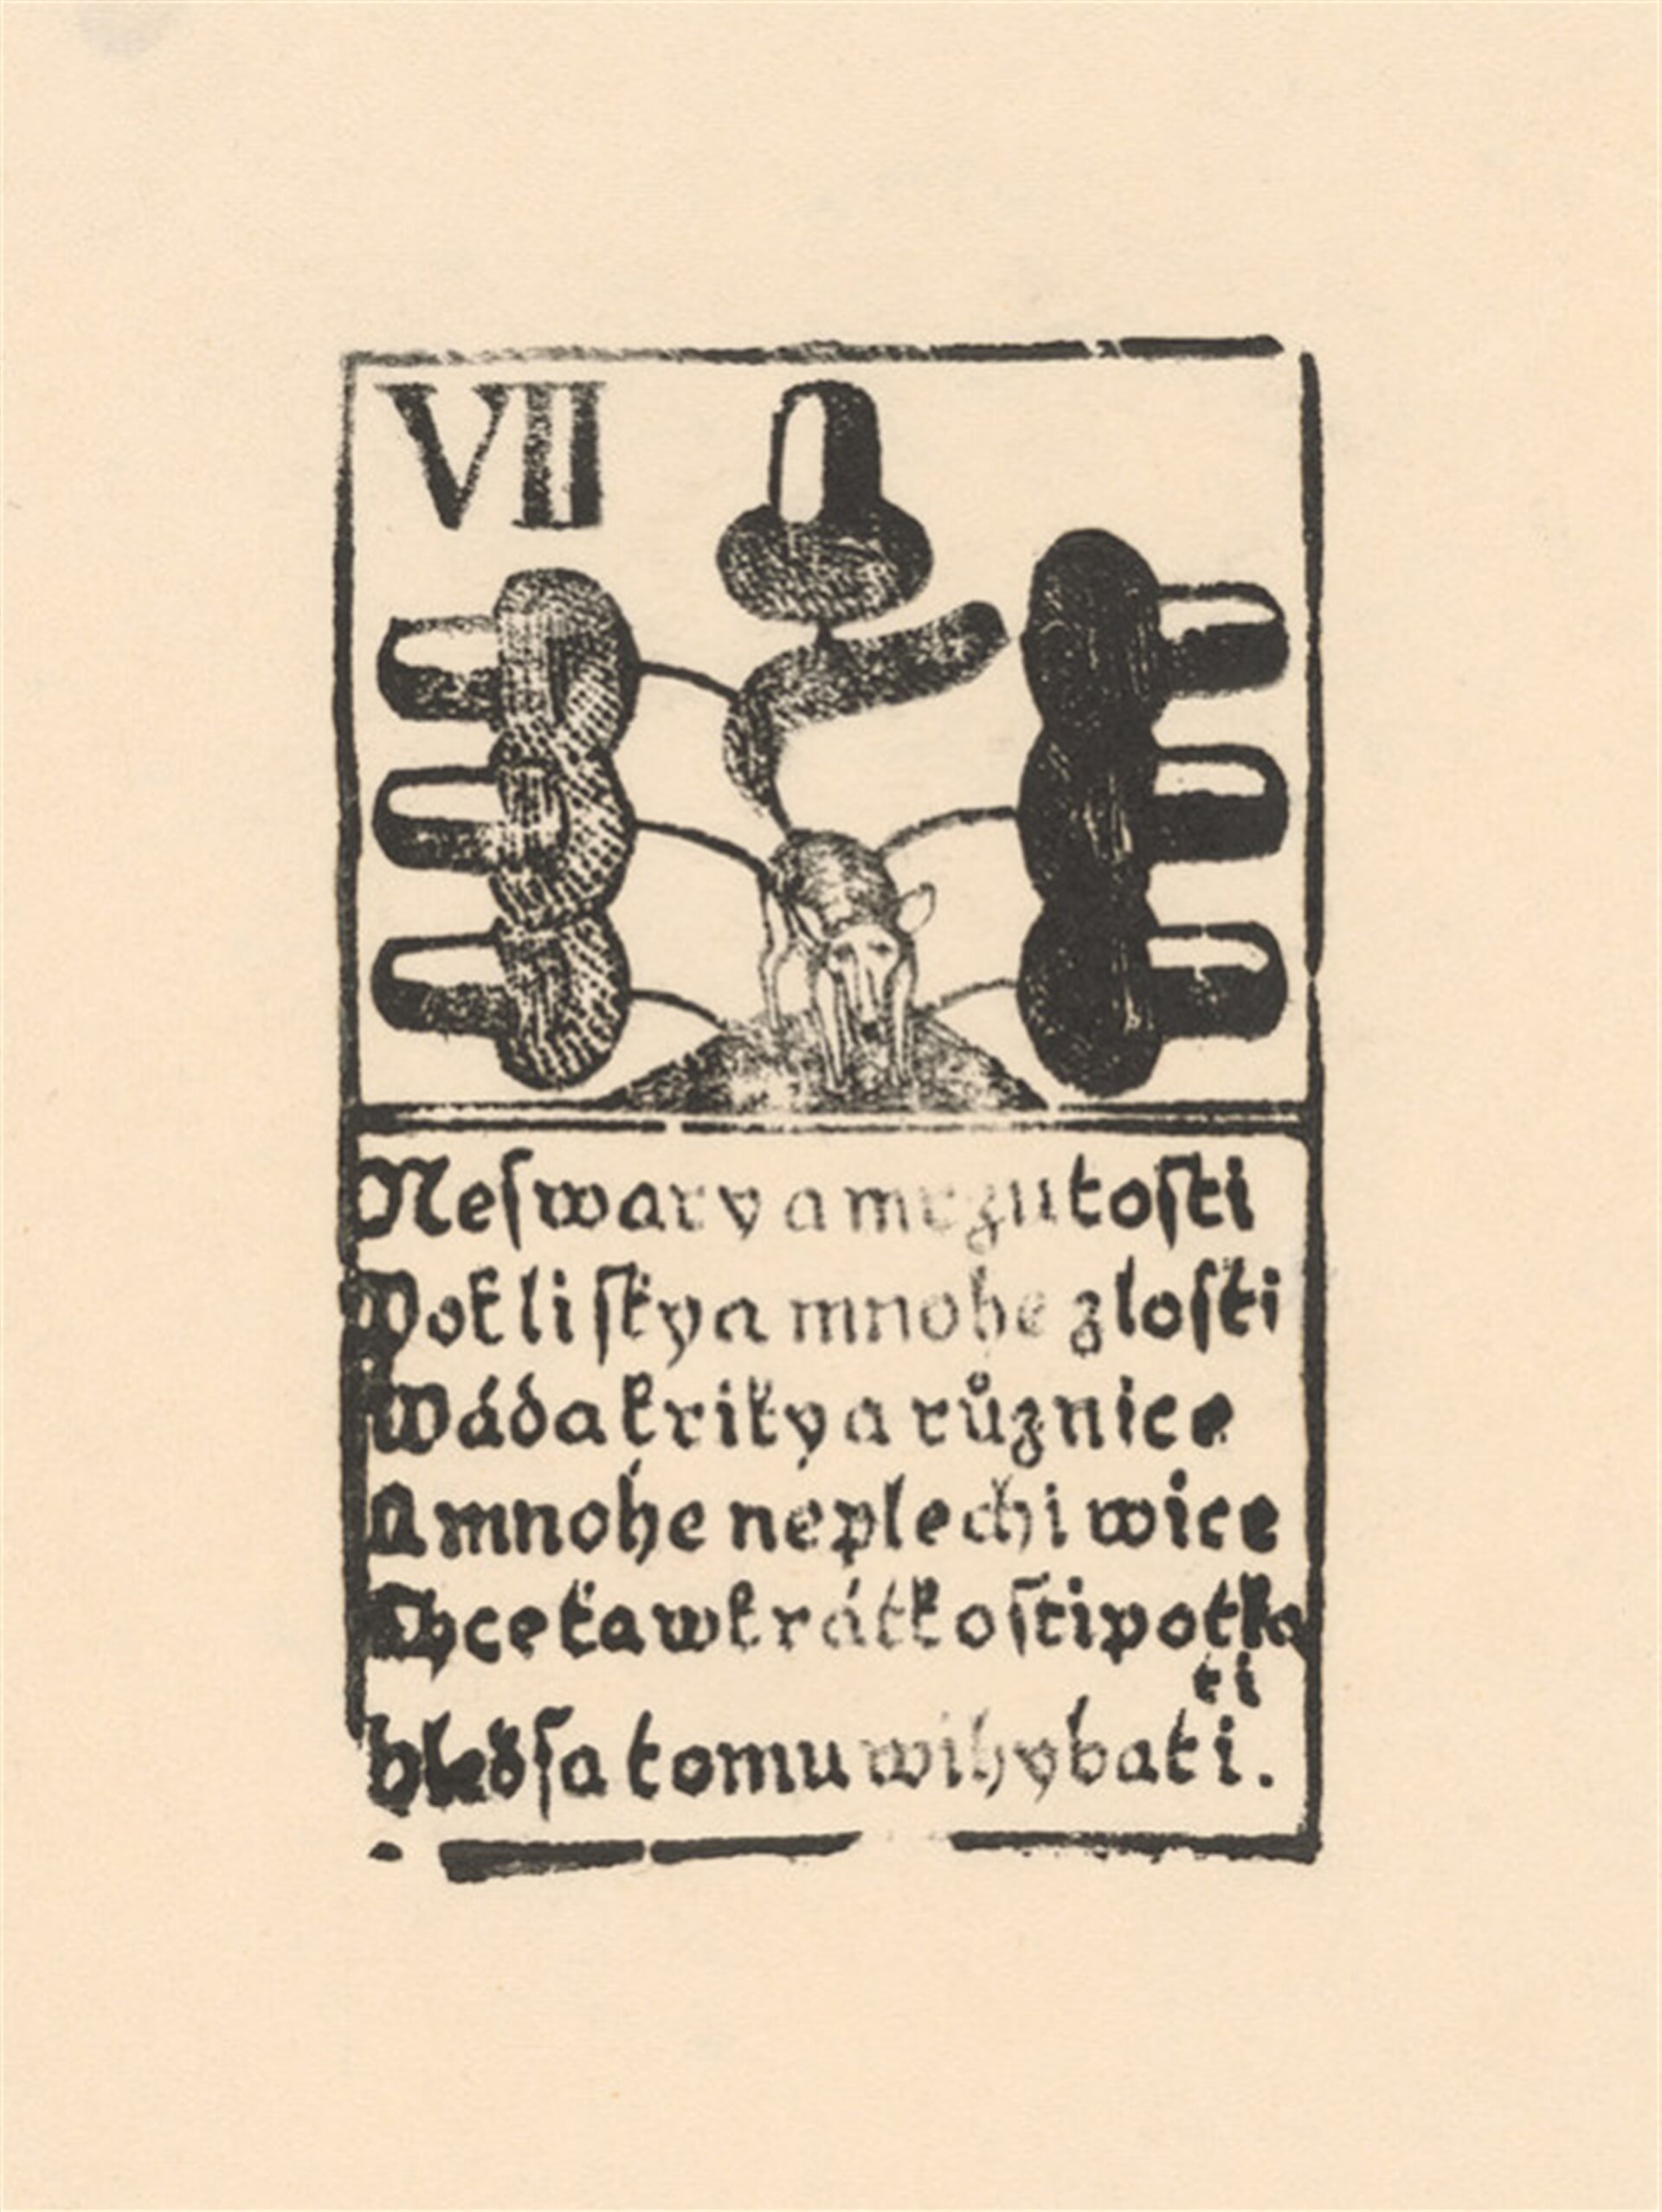 VII
Neſwary a mrzutoſti
Pokliſky a mnohe zloſti
Wáda kriky a různice
A mnohe neplechi wice
Chce ťa wkrátkoſti potka
ti
hleď ſa tomu wihybati.